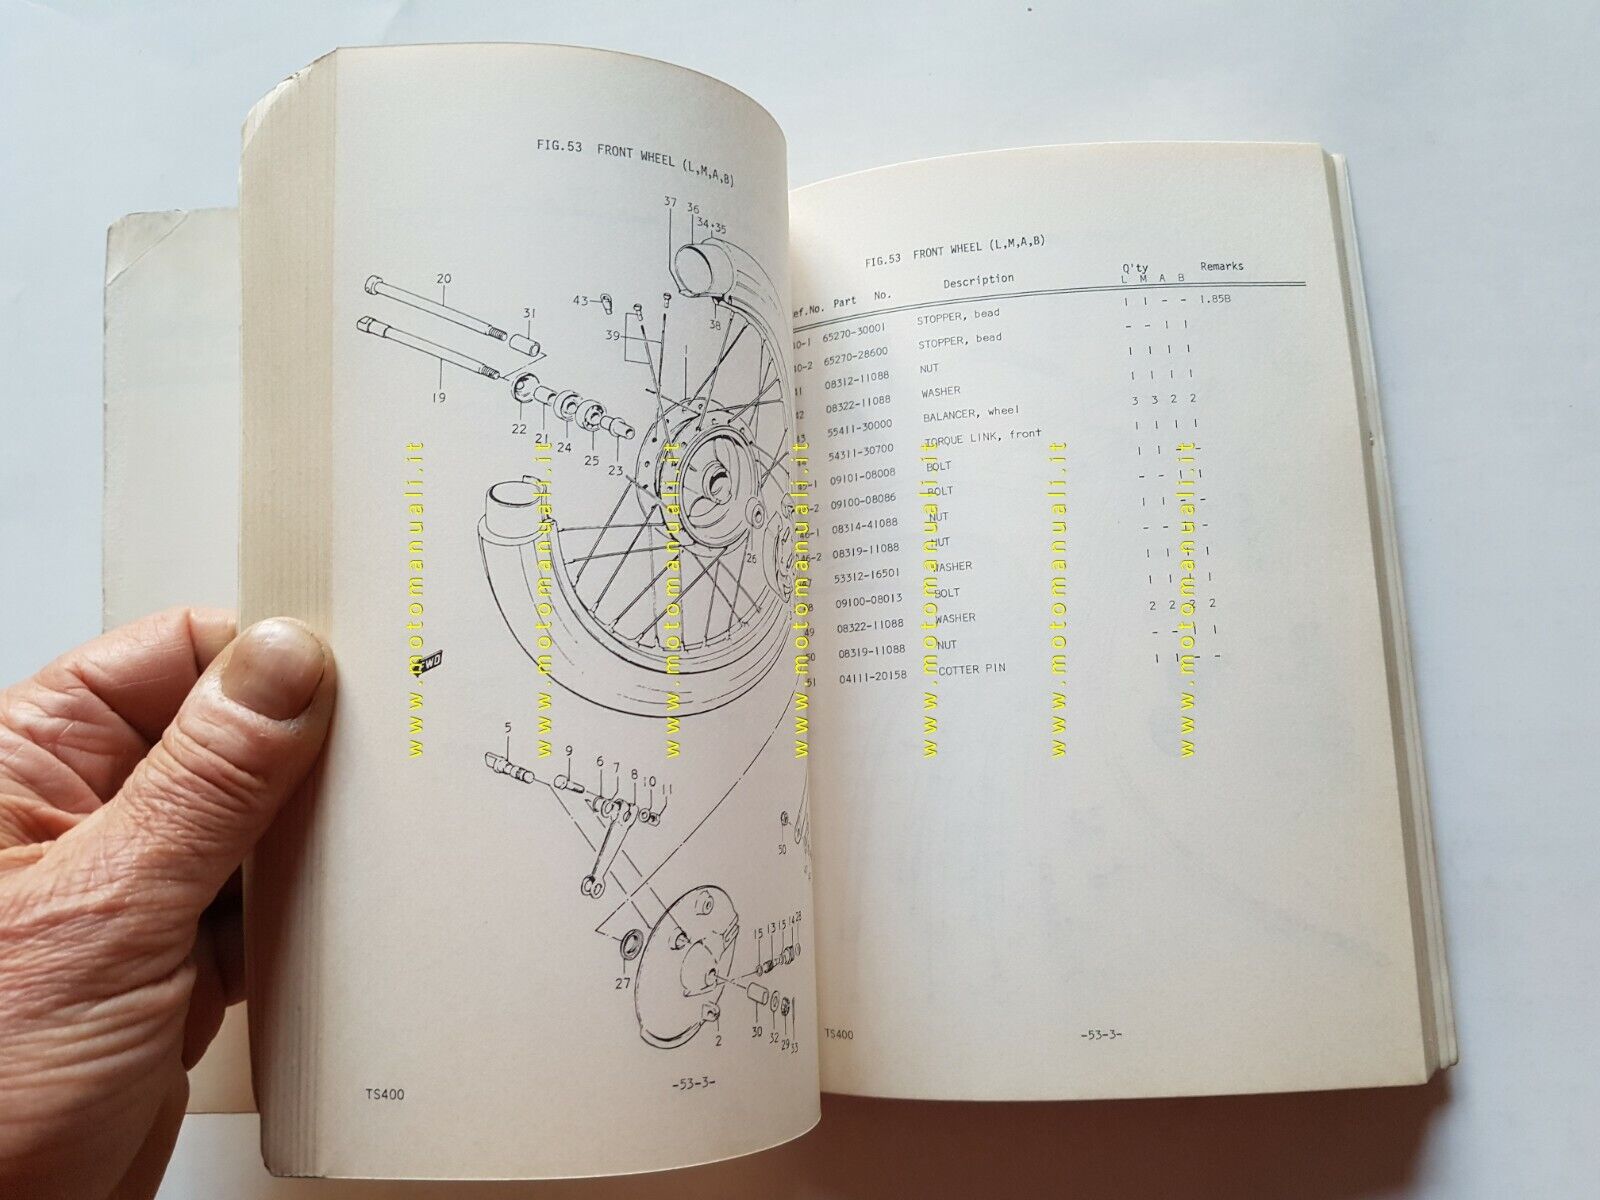 FIG.53 FRONT WHEEL (L,M,A,B)
37
36
34·35
20
43
31
38
39
1
19
22
21
24
25
23
26
FWD
5
9
6
7
8
10
11
50
15
13
15
14
28
27
30
32
29
33
2
TS400
-53-3-
FIG.53 FRONT WHEEL (L,M,A,B)
Q'ty
Part No. Description L M A B Remarks
65270-30001 STOPPER, bead 1 1 - - 1.85B
65270-28600 STOPPER, bead - - 1 1
08312-11088 NUT 1 1 1 1
08322-11088 WASHER 1 1 1 1
55411-30000 BALANCER, wheel 3 3 2 2
54311-30700 TORQUE LINK, front 1 1 1 1
09101-08008 BOLT 1 1 - -
09100-08086 BOLT - - 1 1
08314-41088 NUT 1 1 - -
46-2 08319-11088 NUT - - 1 1
53312-16501 WASHER 1 1 1 1
09100-08013 BOLT 1 1 1 1
49 08322-11088 WASHER 2 2 2 2
08319-11088 NUT - - 1 1
51 04111-20158 COTTER PIN 1 1 - -
TS400
-53-3-
www.motomanuali.it
www.motomanuali.it
www.motomanuali.it
www.motomanuali.it
www.motomanuali.it
www.motomanuali.it
www.motomanuali.it